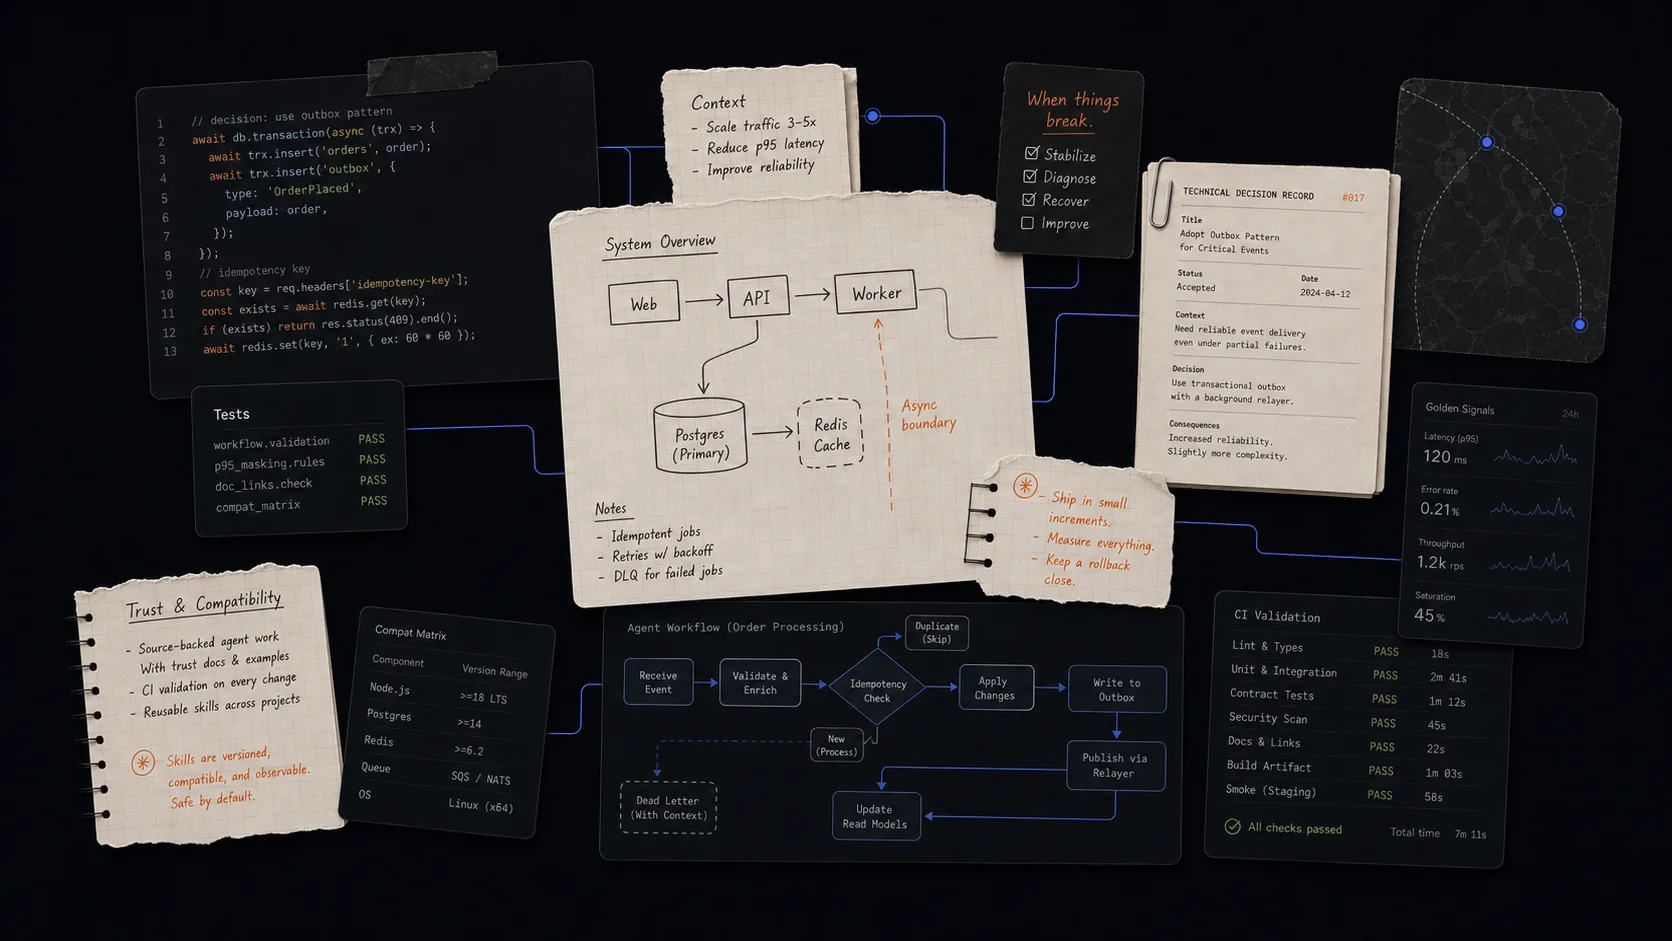 1 // decision: use outbox pattern
2 await db.transaction(async (trx) => {
3 await trx.insert('orders', order);
4 await trx.insert('outbox', {
5 type: 'OrderPlaced',
6 payload: order,
7 });
8 });
9 // idempotency key
10 const key = req.headers['idempotency-key'];
11 const exists = await redis.get(key);
12 if (exists) return res.status(409).end();
13 await redis.set(key, '1', { ex: 60 * 60 });
Context
- Scale traffic 3-5x
- Reduce p95 latency
- Improve reliability
When things
break.
Stabilize
Diagnose
Recover
Improve
TECHNICAL DECISION RECORD #017
Title
Adopt Outbox Pattern
for Critical Events
Status Date
Accepted 2024-04-12
Context
Need reliable event delivery
even under partial failures.
Decision
Use transactional outbox
with a background relayer.
Consequences
Increased reliability.
Slightly more complexity.
System Overview
Web
API
Worker
Postgres
(Primary)
Redis
Cache
Async
boundary
Notes
- Idempotent jobs
- Retries w/ backoff
- DLQ for failed jobs
- Ship in small
increments.
- Measure everything.
- Keep a rollback
close.
Tests
workflow.validation PASS
p95_masking.rules PASS
doc_links.check PASS
compat_matrix PASS
Golden Signals 24h
Latency (p95)
120 ms
Error rate
0.21%
Throughput
1.2k rps
Saturation
45%
Trust & Compatibility
- Source-backed agent work
With trust docs & examples
- CI validation on every change
- Reusable skills across projects
Skills are versioned,
compatible, and observable.
Safe by default.
Compat Matrix
Component Version Range
Node.js >=18 LTS
Postgres >=14
Redis >=6.2
Queue SQS / NATS
OS Linux (x64)
Agent Workflow (Order Processing)
Receive
Event
Validate &
Enrich
Idempotency
Check
Duplicate
(Skip)
Apply
Changes
Write to
Outbox
New
(Process)
Publish via
Relayer
Dead Letter
(With Context)
Update
Read Models
CI Validation
Lint & Types PASS 18s
Unit & Integration PASS 2m 41s
Contract Tests PASS 1m 12s
Security Scan PASS 45s
Docs & Links PASS 22s
Build Artifact PASS 1m 03s
Smoke (Staging) PASS 58s
All checks passed Total time 7m 11s